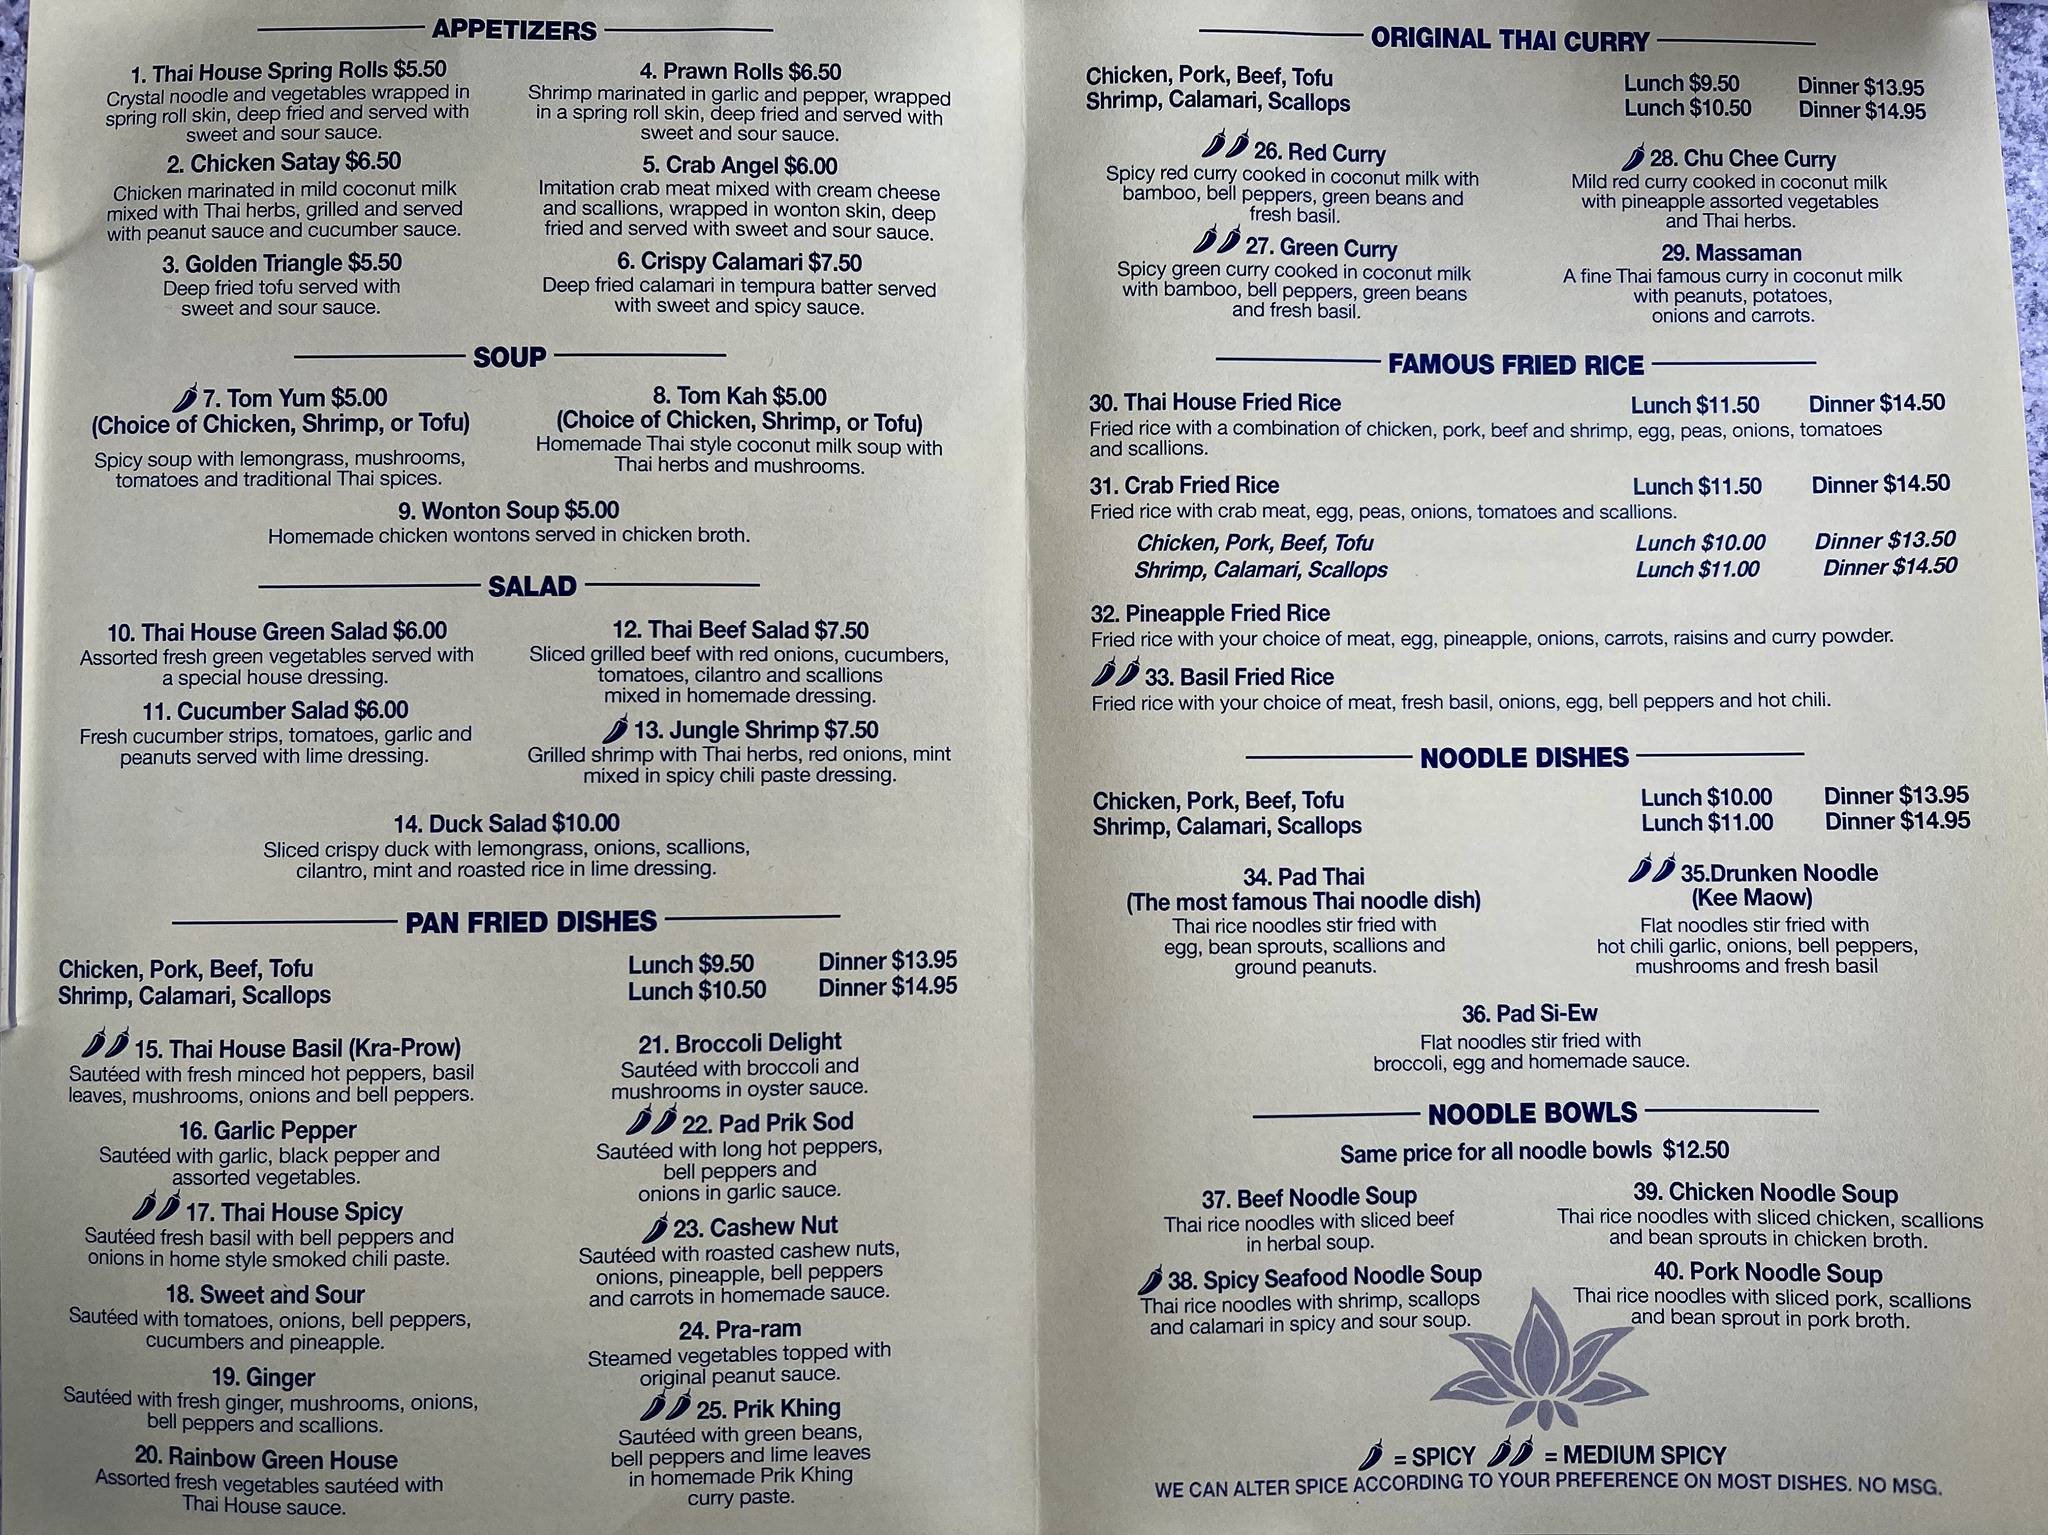 APPETIZERS
1. Thai House Spring Rolls $5.50
Crystal noodle and vegetables wrapped in
spring roll skin, deep fried and served with
sweet and sour sauce.
2. Chicken Satay $6.50
Chicken marinated in mild coconut milk
mixed with Thai herbs, grilled and served
with peanut sauce and cucumber sauce.
3. Golden Triangle $5.50
Deep fried tofu served with
sweet and sour sauce.
4. Prawn Rolls $6.50
Shrimp marinated in garlic and pepper, wrapped
in a spring roll skin, deep fried and served with
sweet and sour sauce.
5. Crab Angel $6.00
Imitation crab meat mixed with cream cheese
and scallions, wrapped in wonton skin, deep
fried and served with sweet and sour sauce.
6. Crispy Calamari $7.50
Deep fried calamari in tempura batter served
with sweet and spicy sauce.
SOUP
7. Tom Yum $5.00
(Choice of Chicken, Shrimp, or Tofu)
Spicy soup with lemongrass, mushrooms,
tomatoes and traditional Thai spices.
8. Tom Kah $5.00
(Choice of Chicken, Shrimp, or Tofu)
Homemade Thai style coconut milk soup with
Thai herbs and mushrooms.
9. Wonton Soup $5.00
Homemade chicken wontons served in chicken broth.
SALAD
10. Thai House Green Salad $6.00
Assorted fresh green vegetables served with
a special house dressing.
11. Cucumber Salad $6.00
Fresh cucumber strips, tomatoes, garlic and
peanuts served with lime dressing.
12. Thai Beef Salad $7.50
Sliced grilled beef with red onions, cucumbers,
tomatoes, cilantro and scallions
mixed in homemade dressing.
13. Jungle Shrimp $7.50
Grilled shrimp with Thai herbs, red onions, mint
mixed in spicy chili paste dressing.
14. Duck Salad $10.00
Sliced crispy duck with lemongrass, onions, scallions,
cilantro, mint and roasted rice in lime dressing.
PAN FRIED DISHES
Chicken, Pork, Beef, Tofu Lunch $9.50 Dinner $13.95
Shrimp, Calamari, Scallops Lunch $10.50 Dinner $14.95
15. Thai House Basil (Kra-Prow)
Sautéed with fresh minced hot peppers, basil
leaves, mushrooms, onions and bell peppers.
16. Garlic Pepper
Sautéed with garlic, black pepper and
assorted vegetables.
17. Thai House Spicy
Sautéed fresh basil with bell peppers and
onions in home style smoked chili paste.
18. Sweet and Sour
Sautéed with tomatoes, onions, bell peppers,
cucumbers and pineapple.
19. Ginger
Sautéed with fresh ginger, mushrooms, onions,
bell peppers and scallions.
20. Rainbow Green House
Assorted fresh vegetables sautéed with
Thai House sauce.
21. Broccoli Delight
Sautéed with broccoli and
mushrooms in oyster sauce.
22. Pad Prik Sod
Sautéed with long hot peppers,
bell peppers and
onions in garlic sauce.
23. Cashew Nut
Sautéed with roasted cashew nuts,
onions, pineapple, bell peppers
and carrots in homemade sauce.
24. Pra-ram
Steamed vegetables topped with
original peanut sauce.
25. Prik Khing
Sautéed with green beans,
bell peppers and lime leaves
in homemade Prik Khing
curry paste.
ORIGINAL THAI CURRY
Chicken, Pork, Beef, Tofu Lunch $9.50 Dinner $13.95
Shrimp, Calamari, Scallops Lunch $10.50 Dinner $14.95
26. Red Curry
Spicy red curry cooked in coconut milk with
bamboo, bell peppers, green beans and
fresh basil.
27. Green Curry
Spicy green curry cooked in coconut milk
with bamboo, bell peppers, green beans
and fresh basil.
28. Chu Chee Curry
Mild red curry cooked in coconut milk
with pineapple assorted vegetables
and Thai herbs.
29. Massaman
A fine Thai famous curry in coconut milk
with peanuts, potatoes,
onions and carrots.
FAMOUS FRIED RICE
30. Thai House Fried Rice Lunch $11.50 Dinner $14.50
Fried rice with a combination of chicken, pork, beef and shrimp, egg, peas, onions, tomatoes
and scallions.
31. Crab Fried Rice Lunch $11.50 Dinner $14.50
Fried rice with crab meat, egg, peas, onions, tomatoes and scallions.
Chicken, Pork, Beef, Tofu Lunch $10.00 Dinner $13.50
Shrimp, Calamari, Scallops Lunch $11.00 Dinner $14.50
32. Pineapple Fried Rice
Fried rice with your choice of meat, egg, pineapple, onions, carrots, raisins and curry powder.
33. Basil Fried Rice
Fried rice with your choice of meat, fresh basil, onions, egg, bell peppers and hot chili.
NOODLE DISHES
Chicken, Pork, Beef, Tofu Lunch $10.00 Dinner $13.95
Shrimp, Calamari, Scallops Lunch $11.00 Dinner $14.95
34. Pad Thai
(The most famous Thai noodle dish)
Thai rice noodles stir fried with
egg, bean sprouts, scallions and
ground peanuts.
35.Drunken Noodle
(Kee Maow)
Flat noodles stir fried with
hot chili garlic, onions, bell peppers,
mushrooms and fresh basil
36. Pad Si-Ew
Flat noodles stir fried with
broccoli, egg and homemade sauce.
NOODLE BOWLS
Same price for all noodle bowls $12.50
37. Beef Noodle Soup
Thai rice noodles with sliced beef
in herbal soup.
38. Spicy Seafood Noodle Soup
Thai rice noodles with shrimp, scallops
and calamari in spicy and sour soup.
39. Chicken Noodle Soup
Thai rice noodles with sliced chicken, scallions
and bean sprouts in chicken broth.
40. Pork Noodle Soup
Thai rice noodles with sliced pork, scallions
and bean sprout in pork broth.
= SPICY = MEDIUM SPICY
WE CAN ALTER SPICE ACCORDING TO YOUR PREFERENCE ON MOST DISHES. NO MSG.